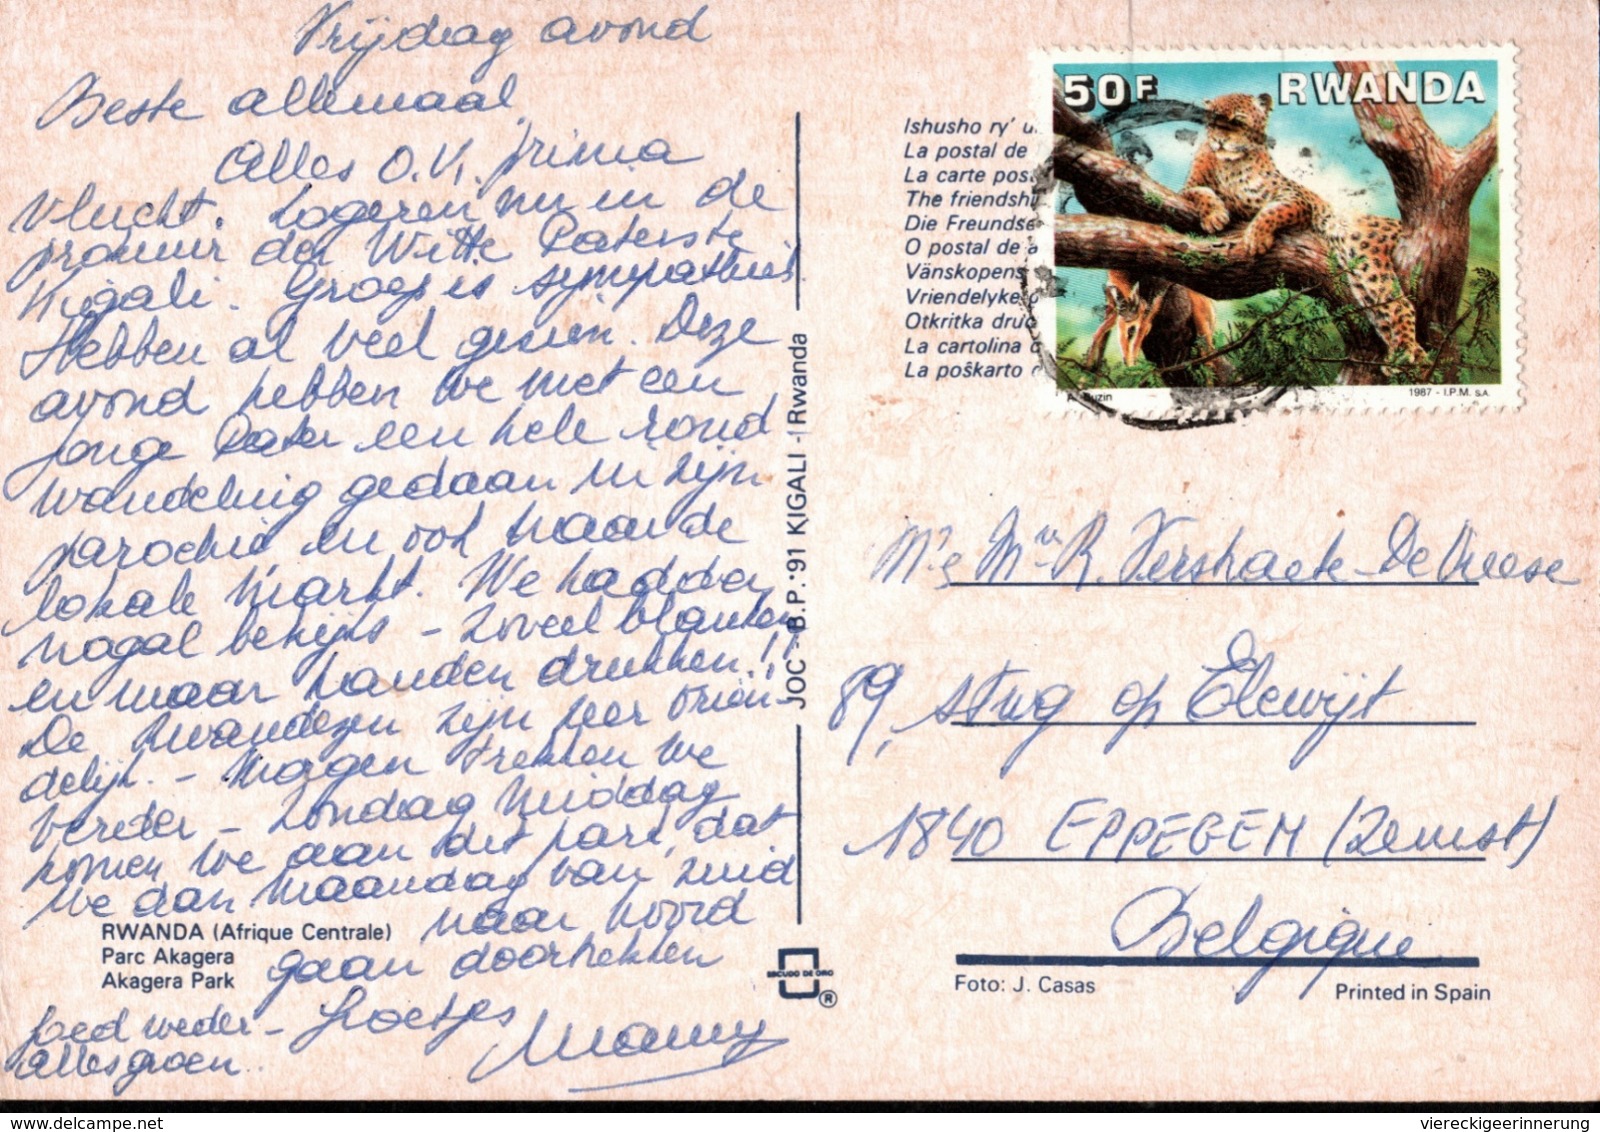 Vrijdag avond
Beste allemaal,
Alles O.K. prima
vlucht. Logeren nu in de
procuur der Witte Paters te
Kigali. Groep is sympathiek
Hebben al veel gezien. Deze
avond hebben we met een
jonge Pater een hele rond
wandeling gedaan in zijn
parochie en ook naar de
lokale markt. We hadden
nogal bekijks - zoveel blanken
en maar handen drukken!!
De Rwandezen zijn zeer vrien-
delijk. - Morgen trekken we
verder - Zondag middag
komen we aan dit park, dat
we dan maandag van zuid
naar noord
gaan doortrekken
RWANDA (Afrique Centrale)
Parc Akagera
Akagera Park
Goed weder -
alles groen.
Groetjes
JOC - B.P.: 91 KIGALI - Rwanda
ESCUDO DE ORO
®
50F RWANDA
1987 - I.P.M. S.A.
Ishusho ry' u
La postal de
La carte post
The friendshi
Die Freundse
O postal de a
Vänskopens
Vriendelyke
Otkritka druc
La cartolina
La poŝkarto
Mr & Mw R. Vershaete-De Vreese
89, stwg op Elewijt
1840 EPPEGEM (Zemst)
Belgique
Foto: J. Casas
Printed in Spain
delcampe.net
viereckigeerinnerung